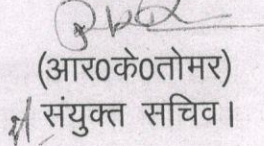 (आर0के0तोमर)
संयुक्त सचिव।